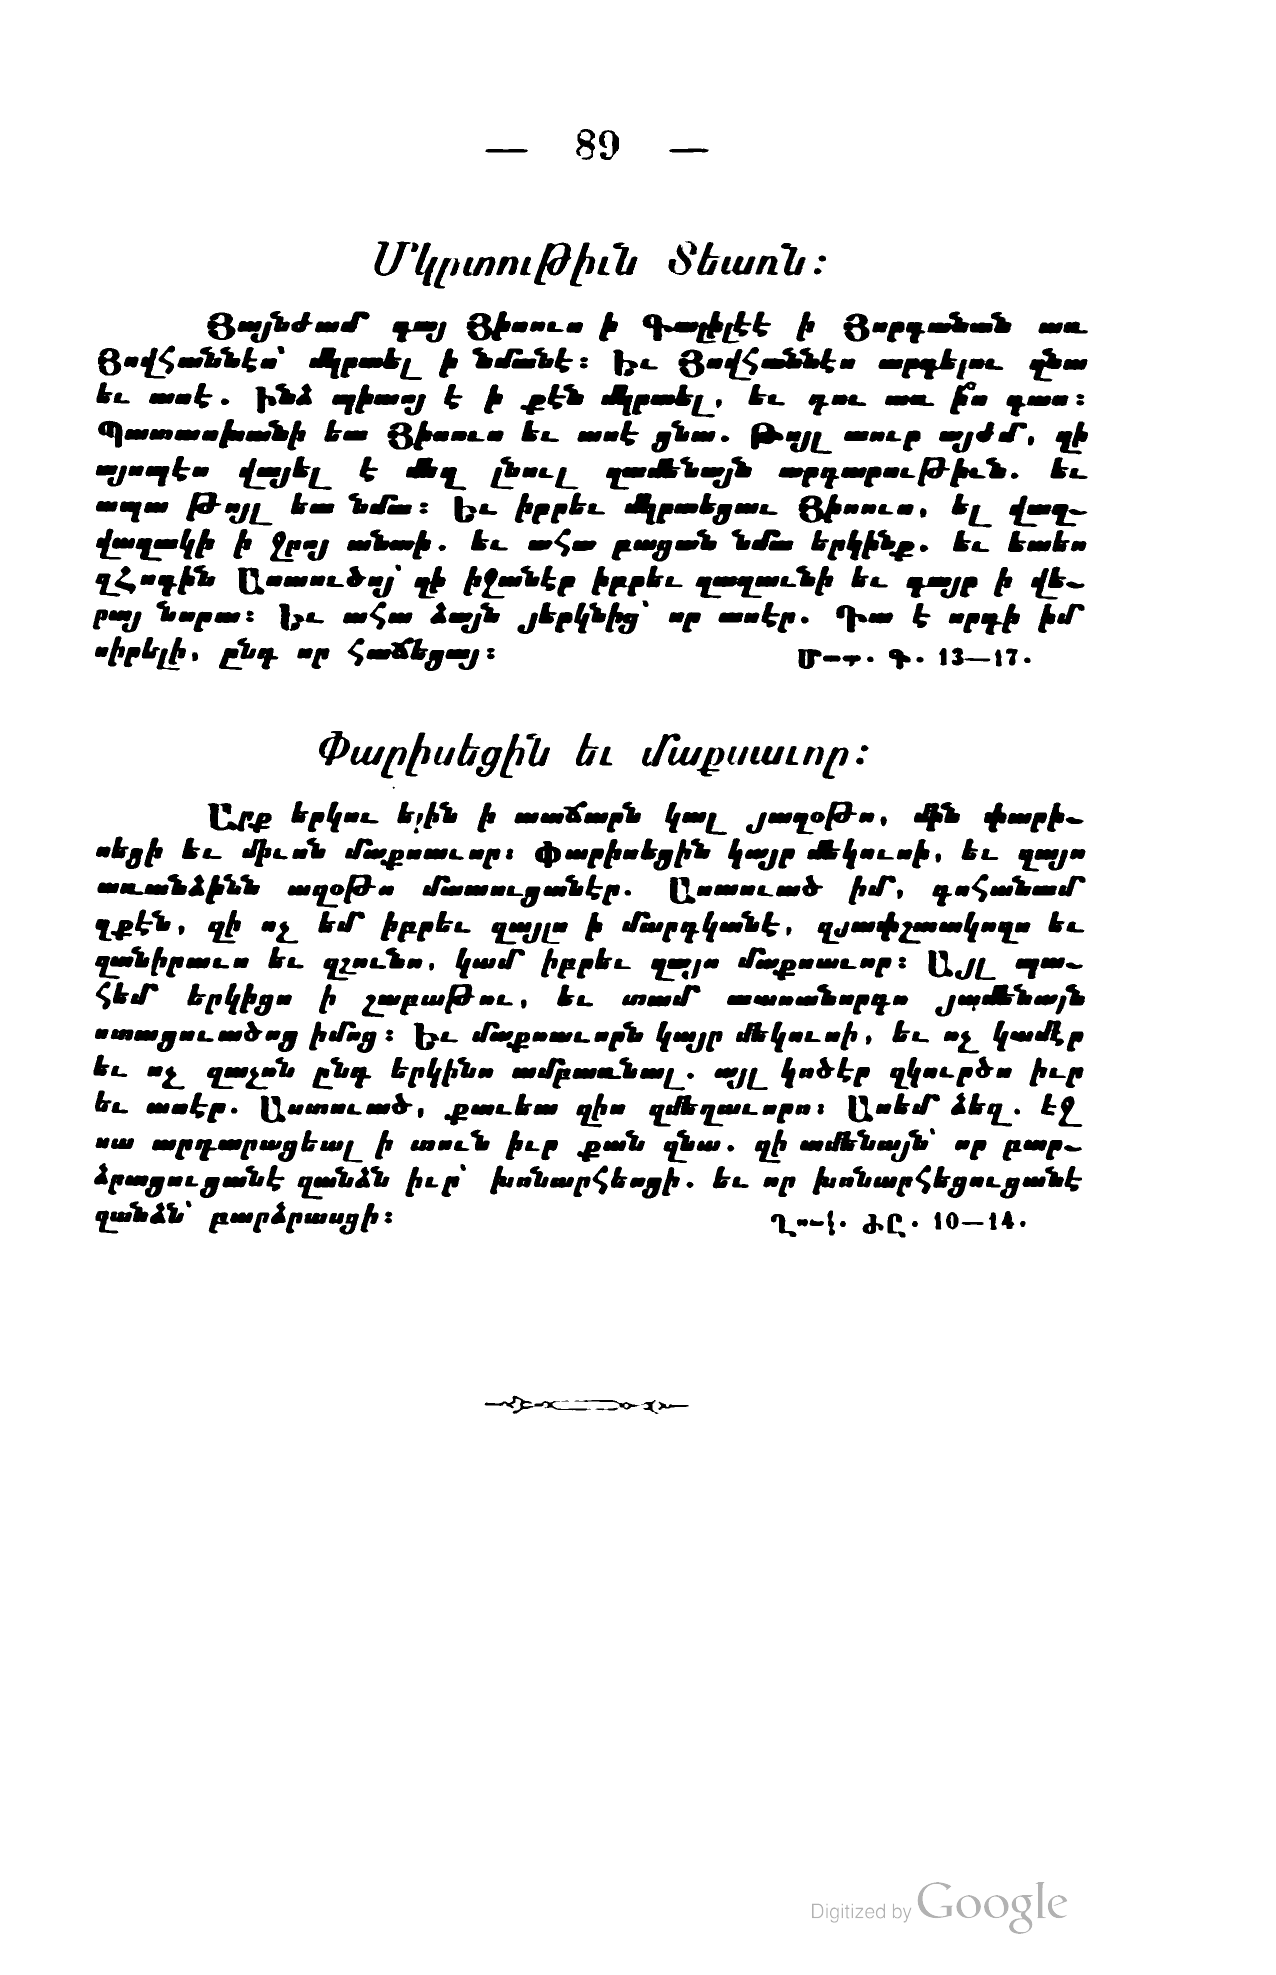 — 89 —
Մկրտութիւն Տեառն։
Յայնժամ գայ Յիսուս ի Գալիլէէ ի Յորդանան առ
Յովհաննէս՝ մկրտել ի նմանէ։ Եւ Յովհաննէս արգելու զնա
եւ ասէ. Ինձ պիտոյ է ի քէն մկրտել, եւ դու առ ի՞ս գաս։
Պատասխանի ետ Յիսուս եւ ասէ ցնա. Թոյլ տուր այժմ, զի
այսպէս վայել է մեզ լնուլ զամենայն արդարութիւն. եւ
ապա թոյլ ետ նմա։ Եւ իբրեւ մկրտեցաւ Յիսուս, ել վաղ-
վաղակի ի ջրոյ անտի. եւ ահա բացան նմա երկինք. եւ ետես
զՀոգին Աստուծոյ՝ զի իջանէր իբրեւ զաղաւնի եւ գայր ի վե-
րայ նորա։ Եւ ահա ձայն յերկնից՝ որ ասէր. Դա է որդի իմ
սիրելի, ընդ որ հաճեցայ։ Մատ. Գ. 13—17.
Փարիսեցին եւ մաքսաւոր։
Արք երկու ելին ի տաճարն կալ յաղօթս, մին փարի-
սեցի եւ միւսն մաքսաւոր։ Փարիսեցին կայր մեկուսի, եւ զայս
առանձինն աղօթս մատուցանէր. Աստուած իմ, գոհանամ
զքէն, զի ոչ եմ իբրեւ զայլս ի մարդկանէ, զյափշտակողս եւ
զանիրաւս եւ զշունս, կամ իբրեւ զայս մաքսաւոր։ Այլ պա-
հեմ երկիցս ի շաբաթու, եւ տամ տասանորդս յամենայն
ստացուածոց իմոց։ Եւ մաքսաւորն կայր մեկուսի, եւ ոչ կամէր
եւ ոչ զաչսն ընդ երկինս ամբառնալ. այլ կոծէր զկուրծս իւր
եւ ասէր. Աստուած, քաւեա զիս զմեղաւորս։ Ասեմ ձեզ. էջ
սա արդարացեալ ի տուն իւր քան զնա. զի ամենայն՝ որ բար-
ձրացուցանէ զանձն իւր՝ խոնարհեսցի. եւ որ խոնարհեցուցանէ
զանձն՝ բարձրասցի։ Ղուկ. ԺԸ. 10—14.
Digitized by Google